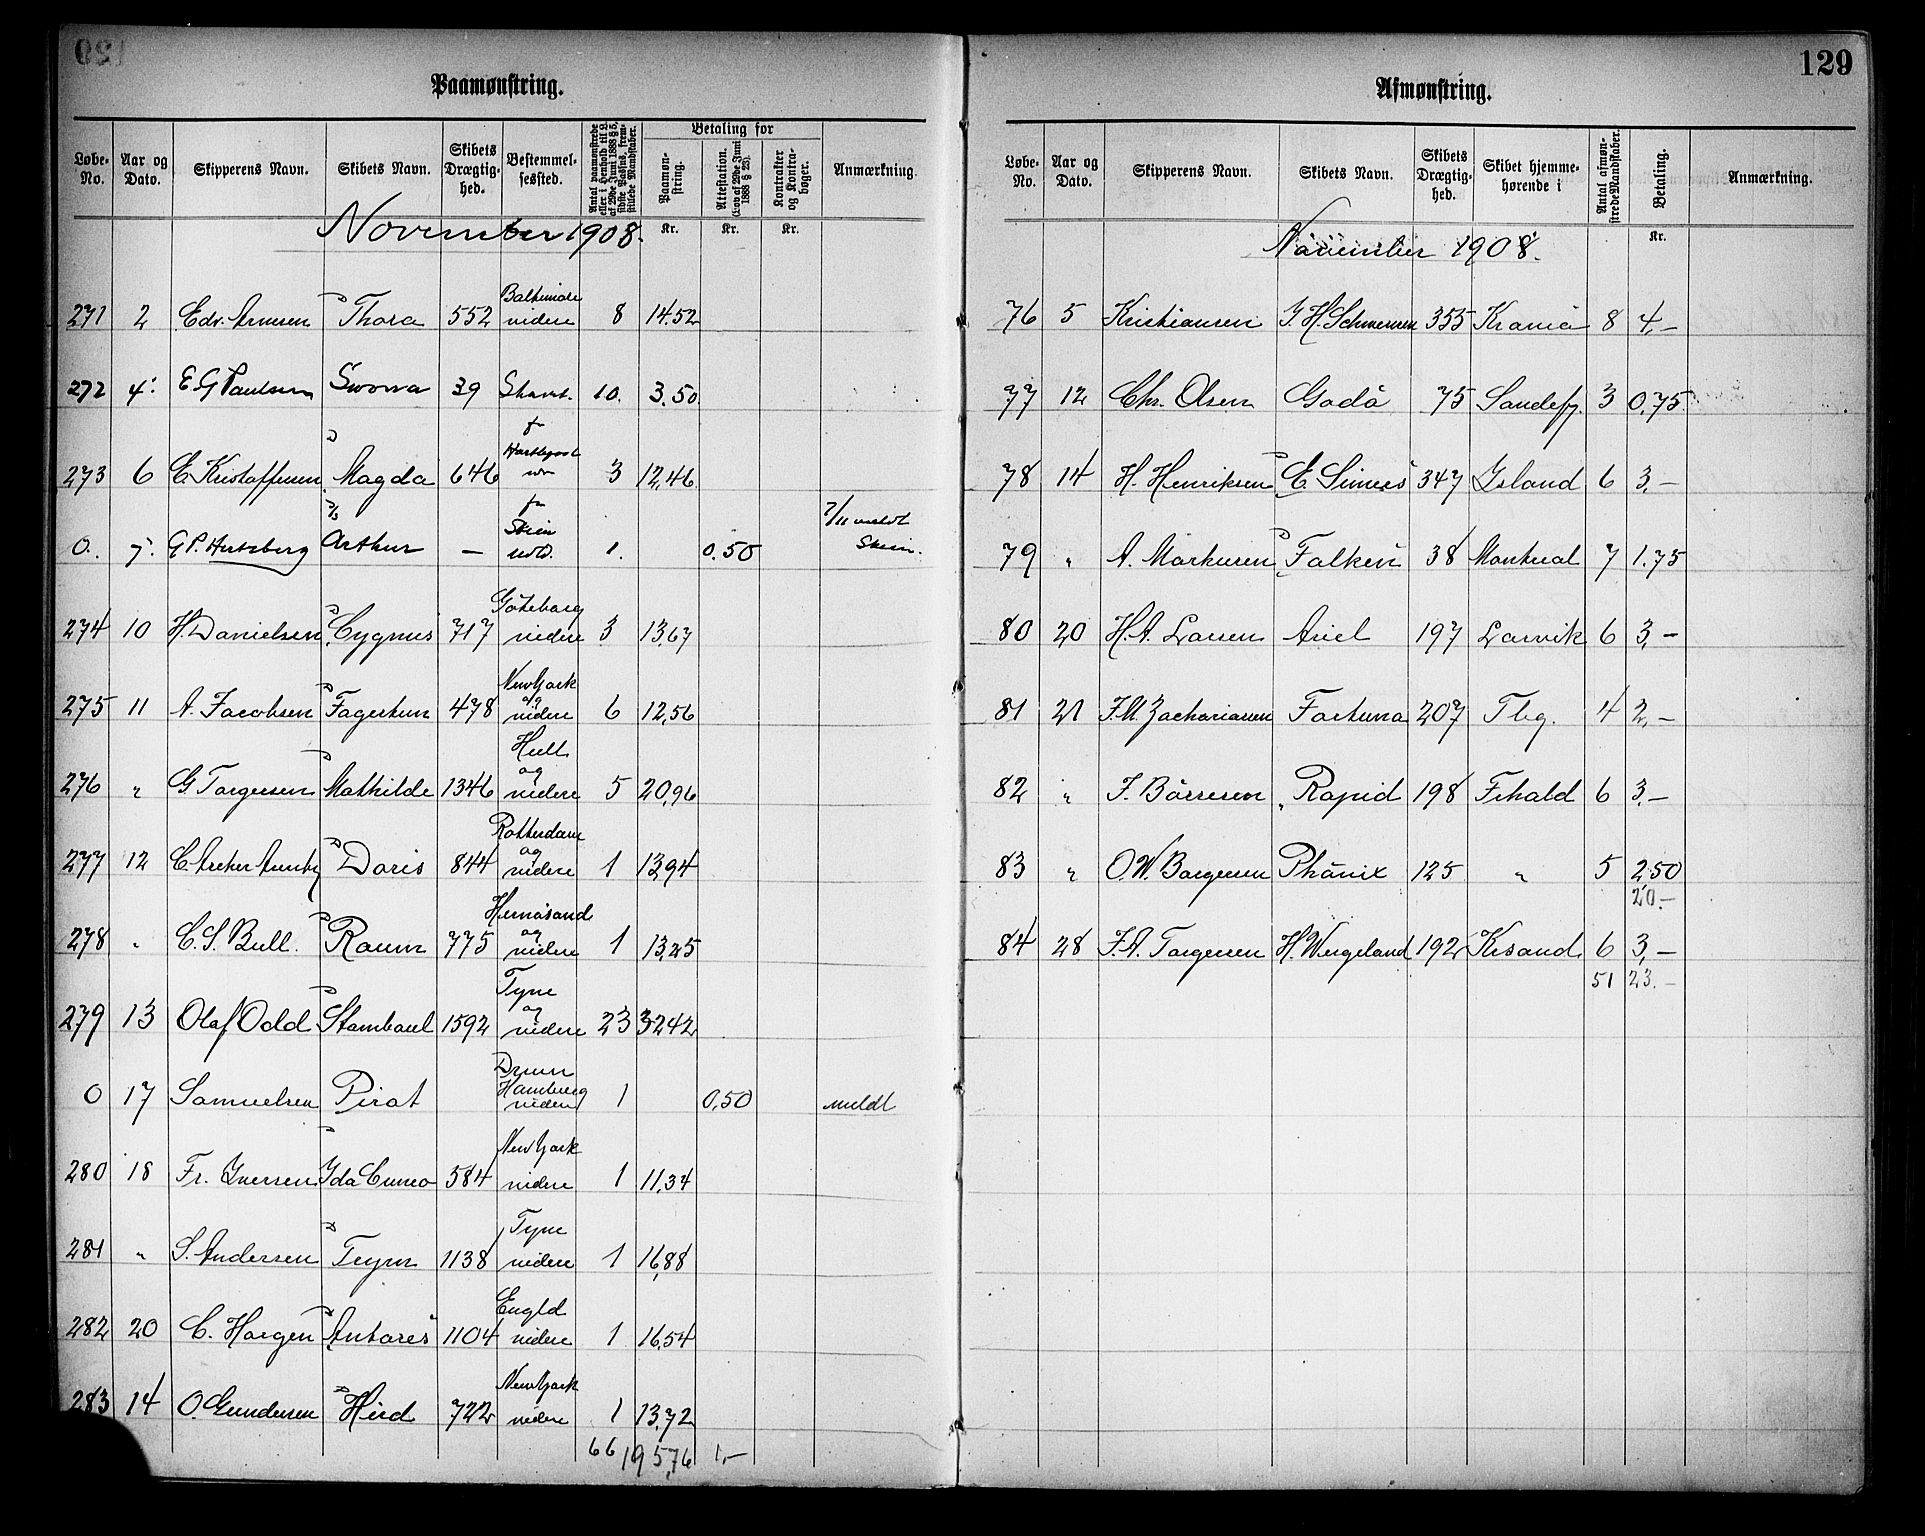 129
Paamønstring.
Løbe-No. Aar og Dato. Skipperens Navn. Skibets Navn. Skibets Drægtighed. Bestemmelsessted. Antal paamønstrede eller i Henhold til L. af 29de Juni 1888 § 5, sidste Passus, fremstillede Mandskaber. Betaling for Paamønstring. Attestation. (Lov af 29de Juni 1888 § 23). Kontrakter og Kontrabøger. Anmærkning.
November 1908. Kr. Kr. Kr.
271 2 Edv. Arnesen D Thora 552 Baltimore videre 8 14.52
272 4. E G Paulsen 39 10. 3.50
273 6 E Kristoffersen D Magda 646 3 12,46
0. 7. G P. Hertzberg D/S Arthur — fra Skien udld. 1. 0.50 7/11 meldt Skien.
274 10 H. Danielsen D Cygnus 717 Göteborg videre 3 13,67
275 11 A. Jacobsen D Fagertun 478 New York og videre 6 12,56
276 " G Torgersen D Mathilde 1346 Hull og videre 5 20,96
277 12 C. D Doris 844 Rotterdam og videre 1 13,94
278 " C. S. Bull. D Raum 775 Hernösand og videre 1 13,25
279 13 Olaf Odd D Stamboul 1592 Tyne og videre 23 32,42
0 17 Samuelsen Pirat Drmn Hamburg videre 1 0,50 meldt
280 18 Fr. Iversen D Ida Cuneo 584 New York videre 1 11,34
281 " S. Andersen D Trym 1138 Tyne videre 1 16,88
282 20 C. Horgen D Antares 1104 Engld videre 1 16,54
283 14 O. Gundersen D Hird 722 New York videre 1 13,72
66 195,76 1,—
Afmønstring.
Løbe-No. Aar og Dato. Skipperens Navn. Skibets Navn. Skibets Drægtighed. Skibet hjemmehørende i Antal afmønstrede Mandskaber. Betaling. Anmærkning.
November 1908. Kr.
76 5 Kristiansen J. H. 355 Krania 8 4,—
77 12 Chr. Olsen Godö 75 Sandefj. 3 0,75
78 14 H. Henriksen D E. 347 Island 6 3,—
79 " A. Markusen D Falken 38 Montreal 7 1.75
80 20 H. A. Larsen Ariel 197 Larvik 6 3,—
81 21 J. M. Zachariasen Fortuna 207 Tbg. 4 2,—
82 " J. Börresen Rapid 198 Frhald 6 3,—
83 " O. W. Borgersen Phönix 125 " 5 2,50
20.—
84 28 J. A. Torgersen H. Wergeland 192 Krsand 6 3,—
51 23.—